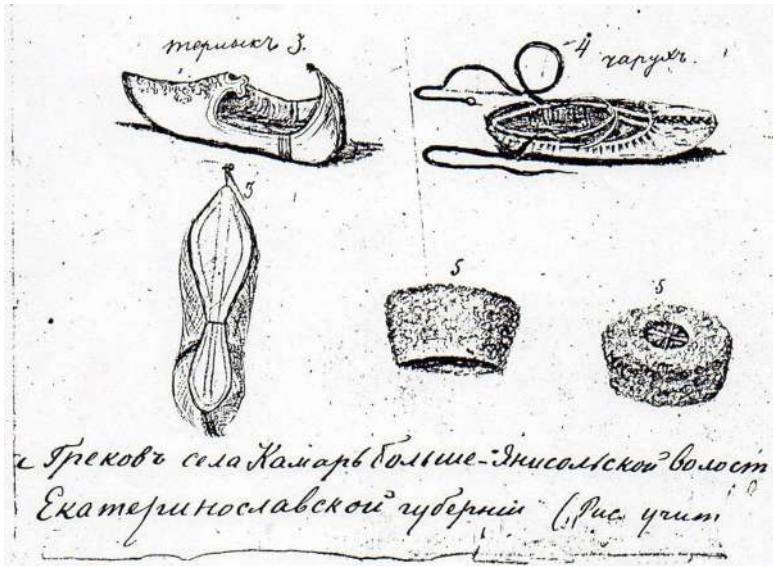 терлыкъ 3.
4 чарухъ.
3
5
5
Грековъ села Камаръ Больше-Янисольской волост
Екатеринославской губернiи (Рис. учит